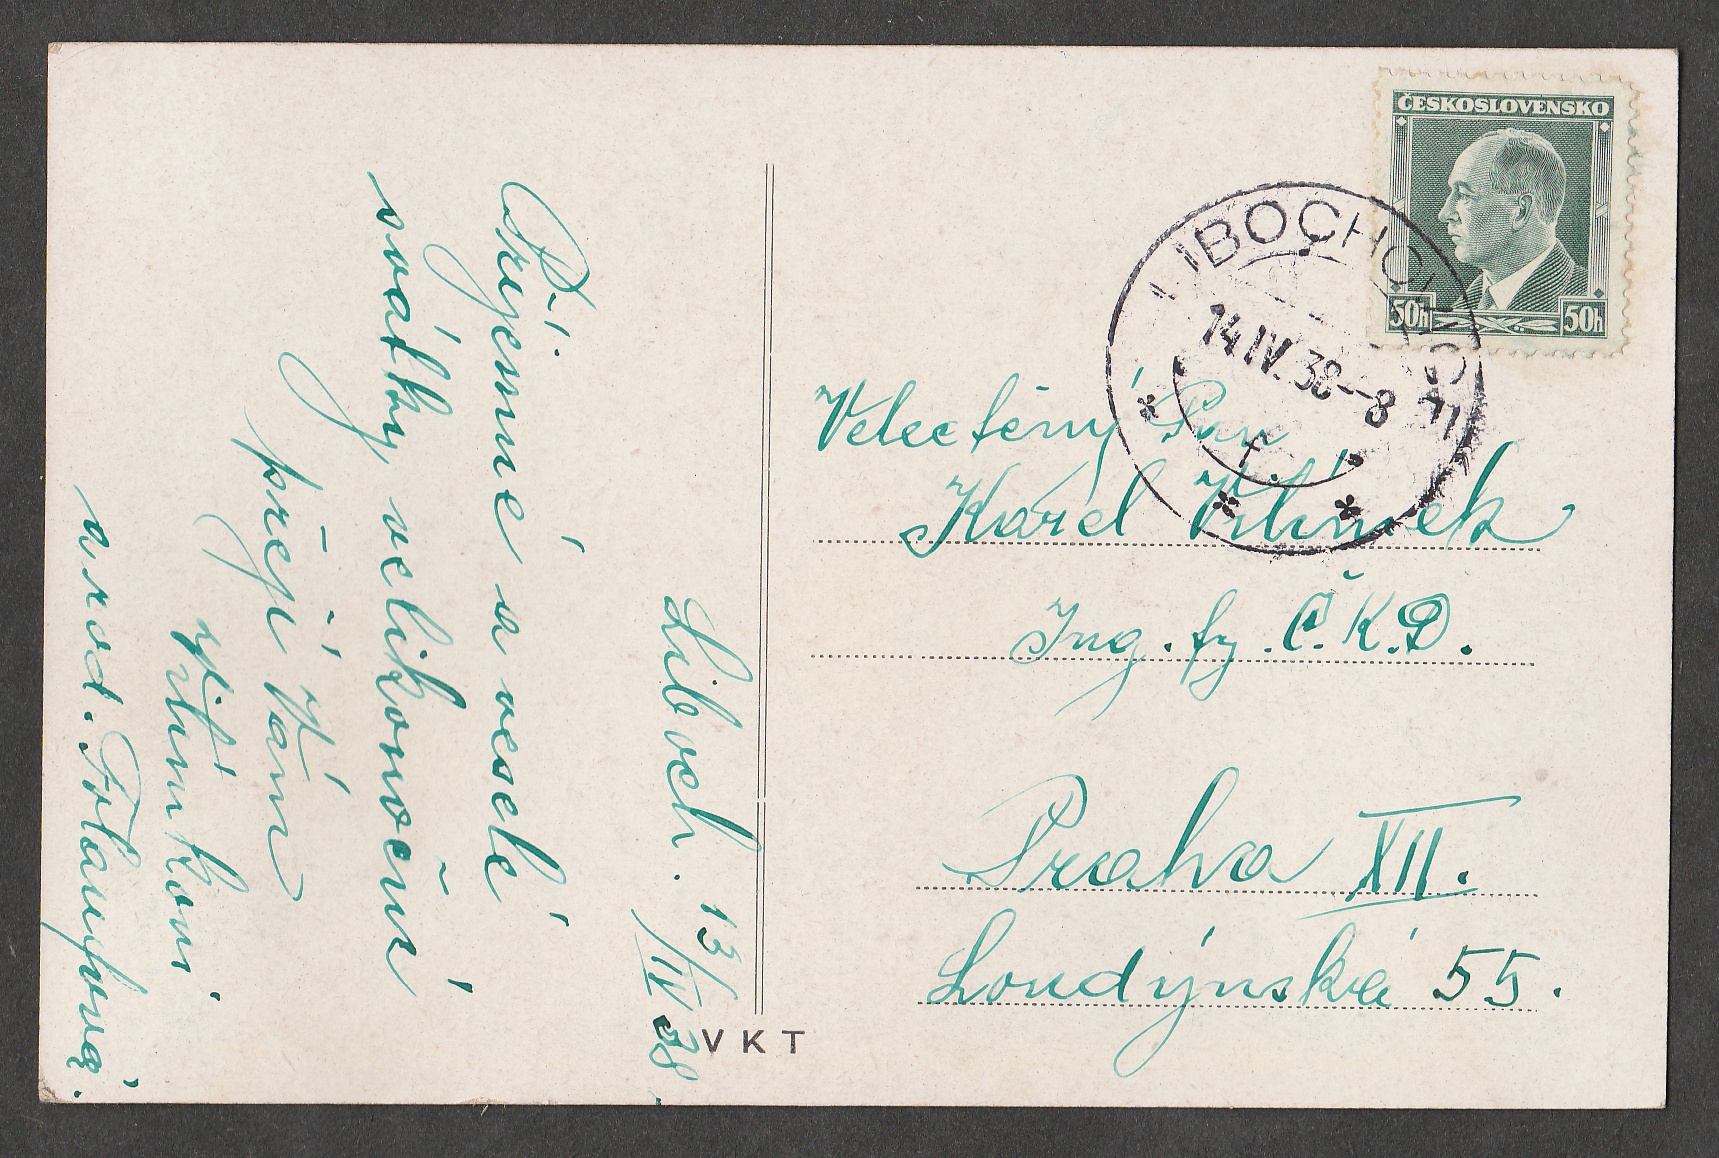 ČESKOSLOVENSKO
50h 50h
LIBOCHOVICE
14.IV.38-8
Liboch. 13/IV 38.
Příjemné a veselé
svátky velikonoční
přeji Vám
a rod.
Velectěný Pan
Karel
Ing. fy. Č.K.D.
Praha XII.
Londýnská 55.
VKT